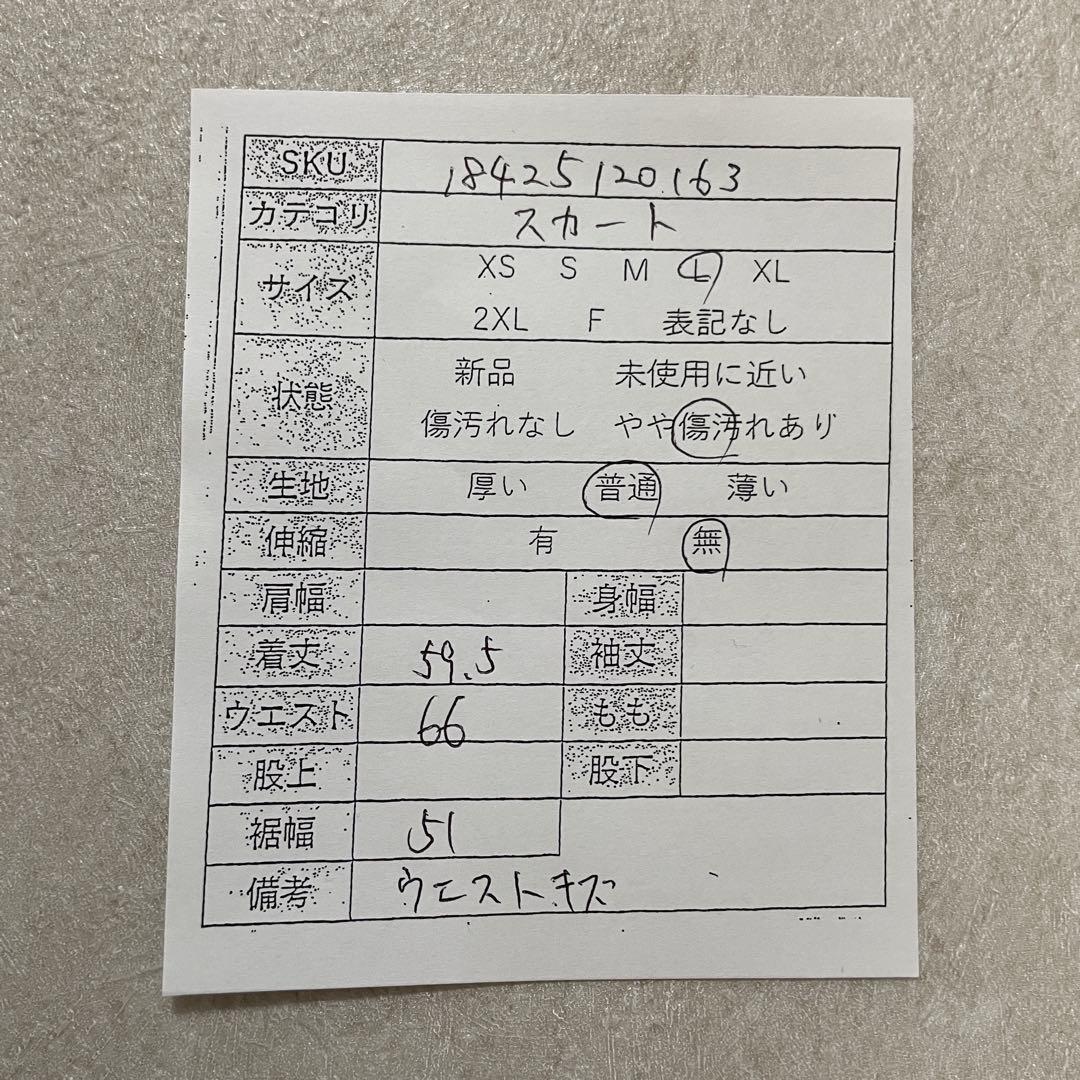 SKU 18425120163
カテゴリ スカート
サイズ XS S M L XL
2XL F 表記なし
状態 新品 未使用に近い
傷汚れなし やや傷汚れあり
生地 厚い 普通 薄い
伸縮 有 無
肩幅 身幅
着丈 59.5 袖丈
ウエスト 66 もも
股上 股下
裾幅 51
備考 ウエストキズ